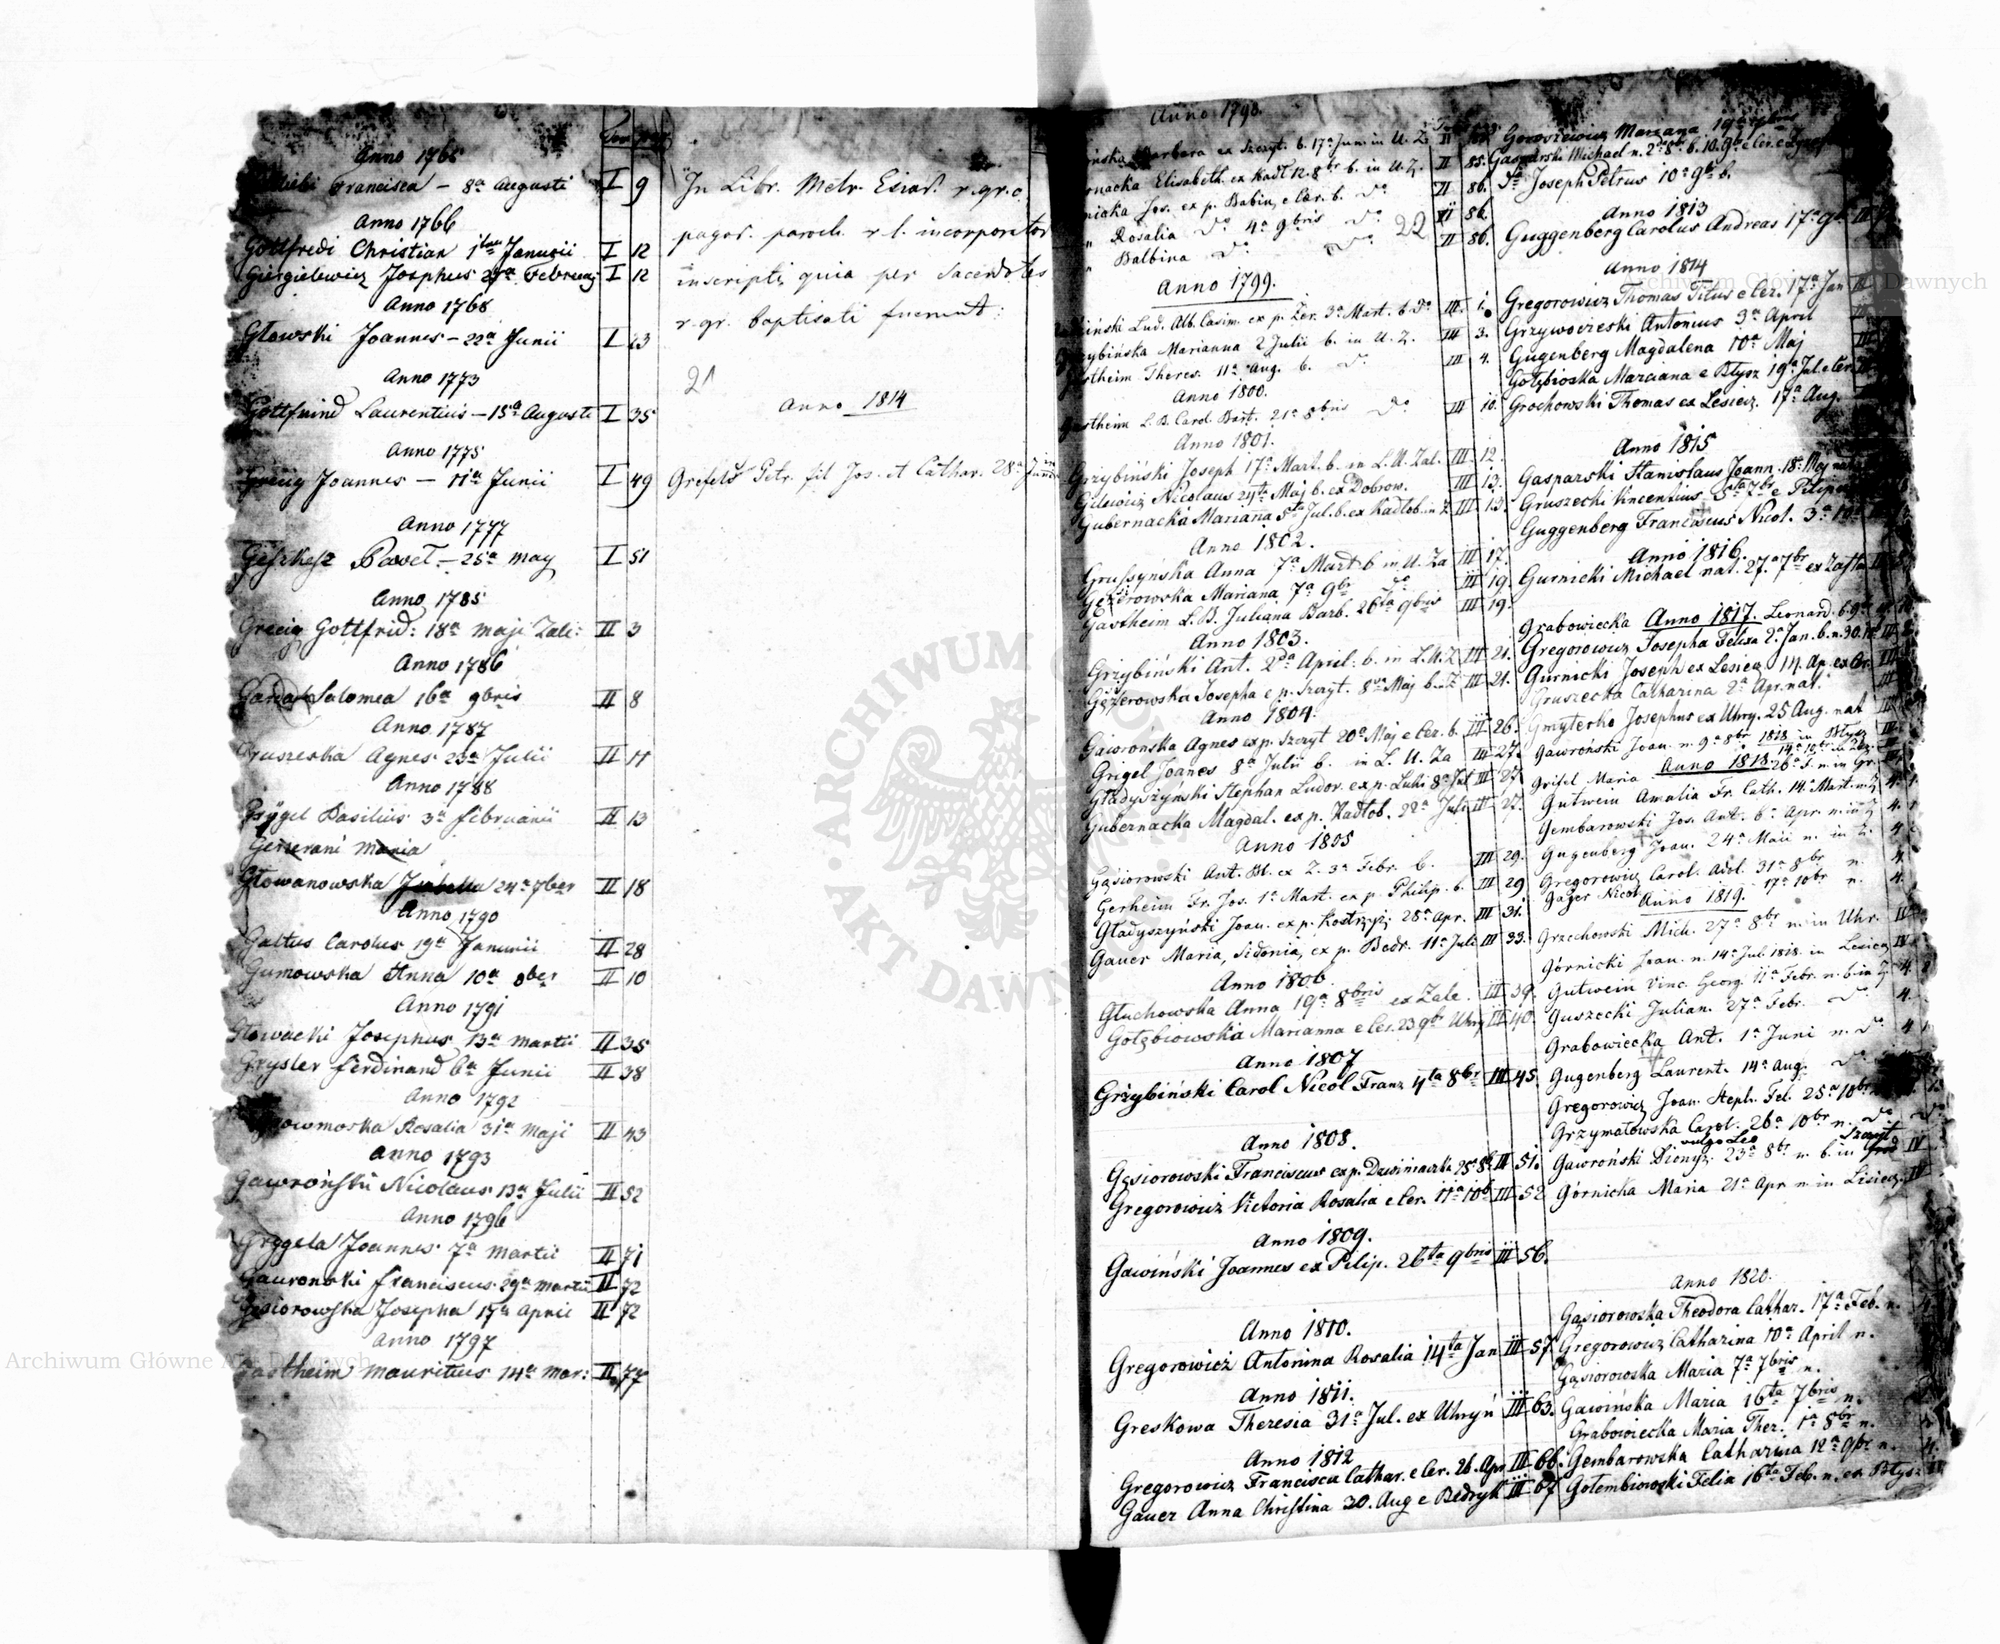 Tom pag.
Anno 1765
Francisca – 8a Augusti I 9
Anno 1766
Gottfredi Christian 1ma Januarii I 12
Giergielewicz Josephus 27a Februarij I 12
Anno 1768
Głowski Joannes – 22a Junii I 23
Anno 1773
Gottfried Laurentius – 15a Augusti I 35
Anno 1775
Grecig Joannes – 11a Junii I 49
Anno 1777
Paweł – 25a May I 51
Anno 1785
Grecig Gottfrid: 18a Maji Zale: II 3
Anno 1786
Salomea 16a 9bris II 8
Anno 1787
Gruszecka Agnes 23a Julii II 11
Anno 1788
Grygel Basilius 3a Februarii II 13
Maria
Głowanowska 24a 7ber II 18
Anno 1790
Galtus Carolus 19a Januarii II 28
Gumowska Anna 10a 9ber II 10
Anno 1791
Głowacki Josephus 13a Martii II 35
Grysler Ferdinand 6a Junii II 38
Anno 1792
Rosalia 31a Maji II 43
Anno 1793
Gawroński Nicolaus 13a Julii II 52
Anno 1796
Grygela Joannes 7a Martii II 71
Gawronski Franciscus 29a Martii II 72
Gąsiorowska Josepha 17a Aprili II 72
Anno 1797
Gastheim Mauritius 14a Mar: II 77
In Libr. Metr. r. gr. c.
pagos. paroch. r. l. incorporator
inscripti, quia per Sacerdotes
r. gr. baptisati fuerunt:
21
Anno 1814
Petr. fil Jos. et Cathar. 28a Junii
Anno 1798
Barbara ex Szczyt. b. 17a Jun. in U. Z. II
Elisabeth. ex Kadł 12. 8br b. in U. Z. II 85.
Jos. ex p. Babin, e Cær. b. do II 86.
" Rosalia do 4a 9bris do 22 II 86.
" Balbina do do II 86.
Anno 1799.
Lud. Alb. Casim. ex p. Zer. 3a Mart. b. do III. 1.
Grzybińska Marianna 2 Julii b. in U. Z. III 3.
Gastheim Theres. 11a Aug. b. do III 4.
Anno 1800.
Gastheim L. B. Carol. Bart. 21a 8bris do III 10.
Anno 1801.
Grzybiński Joseph 17a Mart. b. in L. U. Zal. III 12.
Gilewicz Nicolaus 24ta Maj b. ex Dobrow. III 13.
Gubernacka Marianna 5ta Jul. b. ex Kadłob. in Z III 13.
Anno 1802.
Gruszyńska Anna 7a Mart b in U. Za III 17.
Gęzerowska Mariana 7a 9br do III 19.
Gastheim L. B. Juliana Barb. 26ta 9bris III 19.
Anno 1803.
Grzybiński Ant. 2da April: b. in L. U. Z III 21.
Gęzerowska Josepha e p. Szczyt. 8va Maj b. Z III 21.
Anno 1804.
Gawrońska Agnes ex p. Szczyt 20a Maj e Cer. b. III 26.
Grigel Joanes 8a Julii b. in L. U. Za III 27.
Gładyszyński Stephan Ludov. ex p. Luki 8a Jul III 27.
Gubernacka Magdal. ex p. Kadłob. 22a Juli III 27.
Anno 1805
Gąsiorowski Ant. Bl. ex Z. 3a Febr. b. III 29.
Gerheim Fr. Jos. 1a Mart. ex p. Philip. b. III 29
Gładyszyński Joan. ex p. Kostrzyż. 28a Apr. III 31.
Gauer Maria, Sidonia, ex p. Bedr. 11a Juli III 33.
Anno 1806
Głuchowska Anna 19a 8bris ex Zale. III 39.
Gołębiowska Marianna e Cer. 23 9br Uhry III 40.
Anno 1807
Grzybiński Carol Nicol Franz 4ta 8br III 45.
Anno 1808.
Gąsiorowski Franciscus ex p. Dzwiniaczka 25a 8b III 51.
Gregorowicz Victoria Rosalia e Cer. 17a 10b III 52
Anno 1809.
Gawiński Joannes ex Pilip. 26ta 9bris III 56.
Anno 1810.
Gregorowicz Antonina Rosalia 14ta Jan III 57.
Anno 1811.
Greskowa Theresia 31a Jul. ex Uhryń III 63.
Anno 1812
Gregorowicz Francisca Cathar. e Cer. 26. Apr III 66.
Gauer Anna Christina 30. Aug e Bedryk III 67
Gorowiciowa Mariana 19a 7bris
Gasparski Michael n. 2a 8b b. 10. 9b e Cer. e
do Joseph Petrus 10a 9b b.
Anno 1813
Guggenberg Carolus Andreas 17a 9b III
Anno 1814
Gregorowicz Thomas Titus e Cer. 17a Jan III
Grzywocieski Antonius 3a April
Gugenberg Magdalena 10a Maj
Gołębioska Marciana e Błysz 19a Jul. e Cer.
Grochowski Thomas ex Lesiecz. 17a Aug.
Anno 1815
Gasparski Stanislaus Joann. 18a Maj nat
Gruszecki Vincentius 5ta 7br e Pilip
Guggenberg Franciscus Nicol. 3a 10b
Anno 1816.
Gurnicki Michael nat. 27a 7br ex Zasta
Anno 1817.
Grabowiecka Leonard. 6. 9b
Gregorowicz Josepha Felixa 2a Jan. b. n. 30. 10b III
Gurnicki Joseph ex Lesiecz 14. Ap. ex Cer. III
Gruszecka Catharina 2a Apr. nat. III
Gmyterko Josephus ex Uhry. 25 Aug. nat
Gawroński Joan. n. 9a 8br 1818 in Błysz
14a 10br in Zez.
Anno 1818
Grifel Maria 26a F. n. in Gr.
Gutwein Amalia Fr. Cath. 14a Mart. n. Z 4.
Gembarowski Jos. Ant. 6a Apr. n. in Z 4.
Gugenberg Joan. 24a Maii n. in Z. 4.
Gregorowicz Carol. Adol. 31a 8br n. 4.
Gager Nicol. 17a 10br n. 4.
Anno 1819.
Grzechowski Mich. 27a 8br n. in Uhr. IV
Górnicki Joan. n. 14a Jul. 1818. in Lesiecz IV
Gutwein Vinc. Georg. 11a Febr. n. b. in Z 4.
Guszecki Julian. 27a Febr. do 4.
Grabowiecka Ant. 1a Juni n. do 4
Gugenberg Laurent. 14a Aug. do
Gregorowicz Joan. Steph. Fel. 25a 10br
Grzymałowska Carol. 26a 10br n. do do
vulgo Leo Szczyt
Gawroński Dionyz. 23a 8br n. b. in Grod IV
Górnicka Maria 21a Apr n. in Lisiecz. IV
Anno 1820.
Gąsiorowska Theodora Cathar. 17a Feb. n. 4.
Gregorowicz Catharina 10a April n.
Gąsiorowska Maria 7a 7bris n.
Gawińska Maria 16ta 7bris n.
Grabowiecka Maria Ther. 1a 8br n.
Gembarowska Catharina 12a 9br n. 4.
Gołembiowski Felix 16ta Feb. n. ex Błysz
Archiwum Główne Akt Dawnych
Archiwum Główne Akt Dawnych
ARCHIWUM GŁÓWNE AKT DAWNYCH